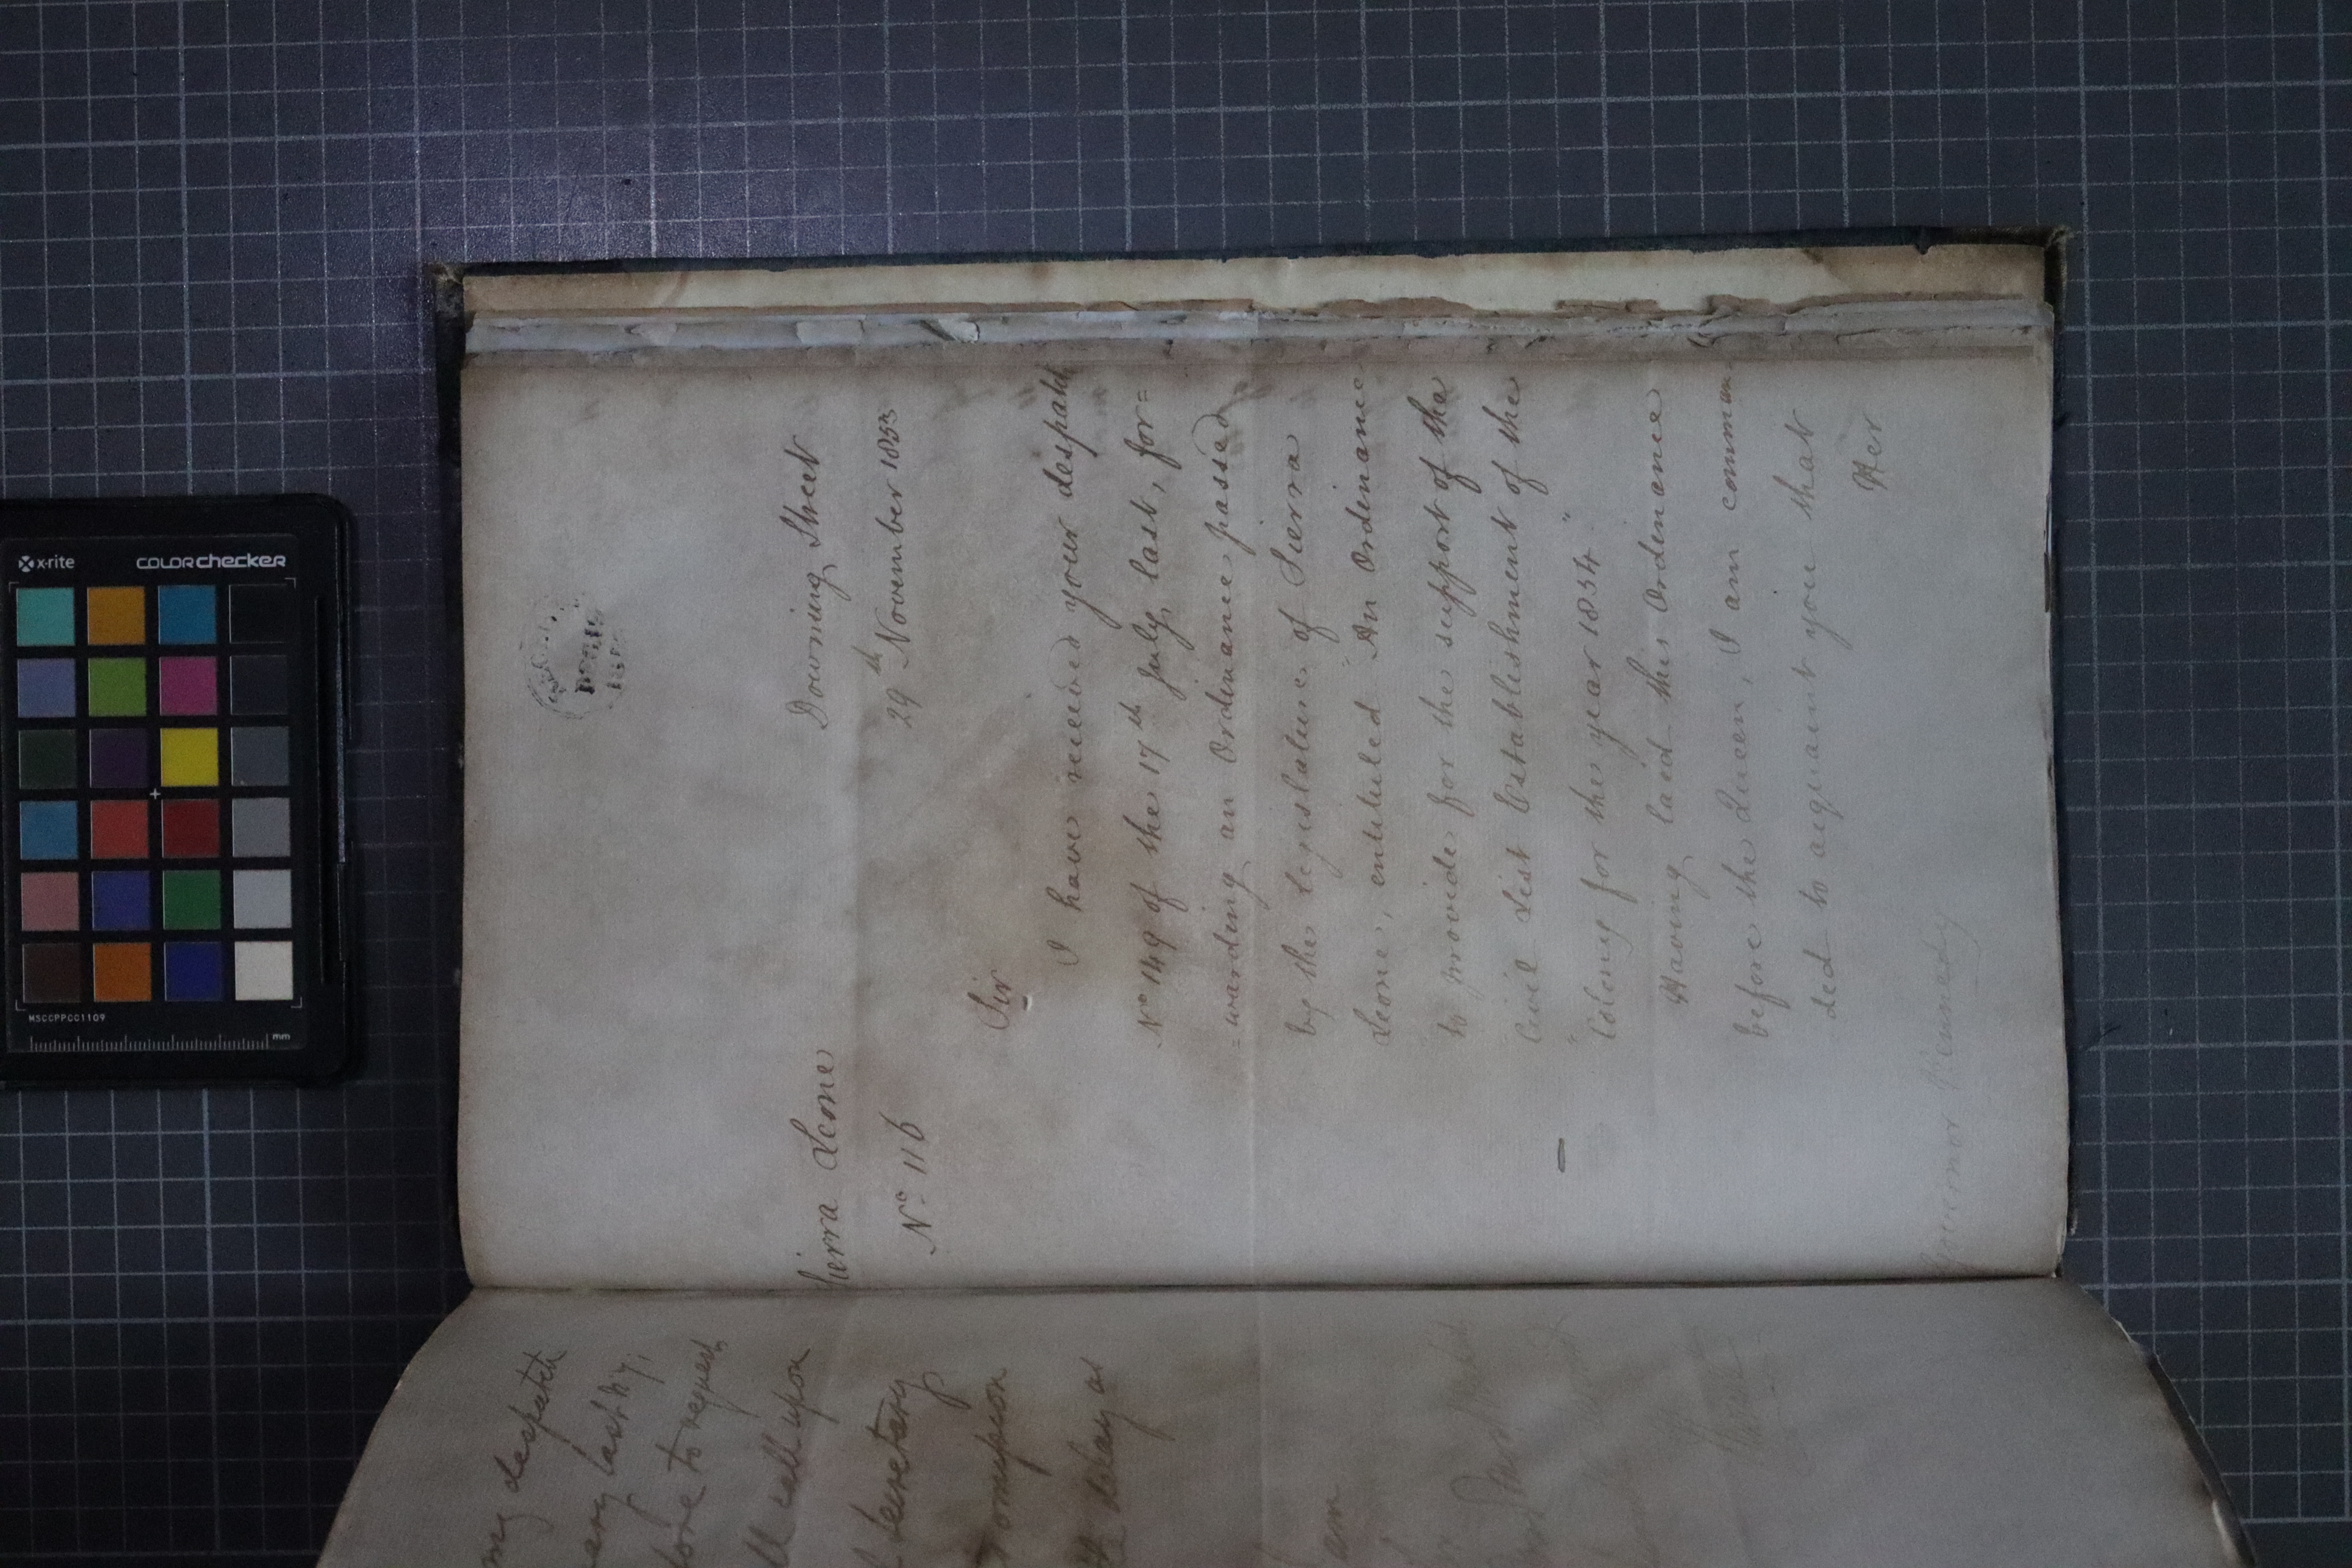 Sierra Leone
Nº 116
Downing Street
29th November 1853
Sir
I have received your despatch
Nº 149 of the 17th July last, for=
=warding an Ordinance passed
by the Legislature of Sierra
Leone, entituled "An Ordinance
"to provide for the support of the
Civil List Establishment of the
"Colony for the year 1854."
Having laid this Ordinance
before the Queen, I am comman
ded to acquaint you that
Her
Governor Kennedy
my despatch
to request
call upon
Secretary
delay as
am
x-rite
colorchecker
MSCCPPCC1109
mm